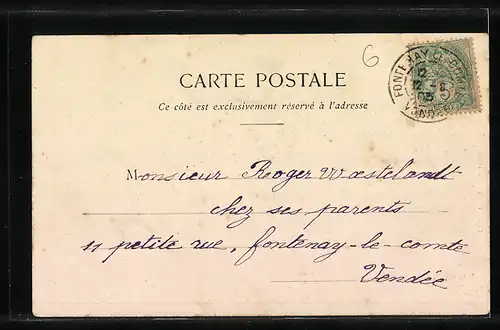 6
FONTENAY-LE-COMTE
12
03
VENDÉE
CARTE POSTALE
Ce côté est exclusivement réservé à l'adresse
Monsieur Roger Woestelandt
chez ses parents
11 petite rue, fontenay-le-comte
Vendée